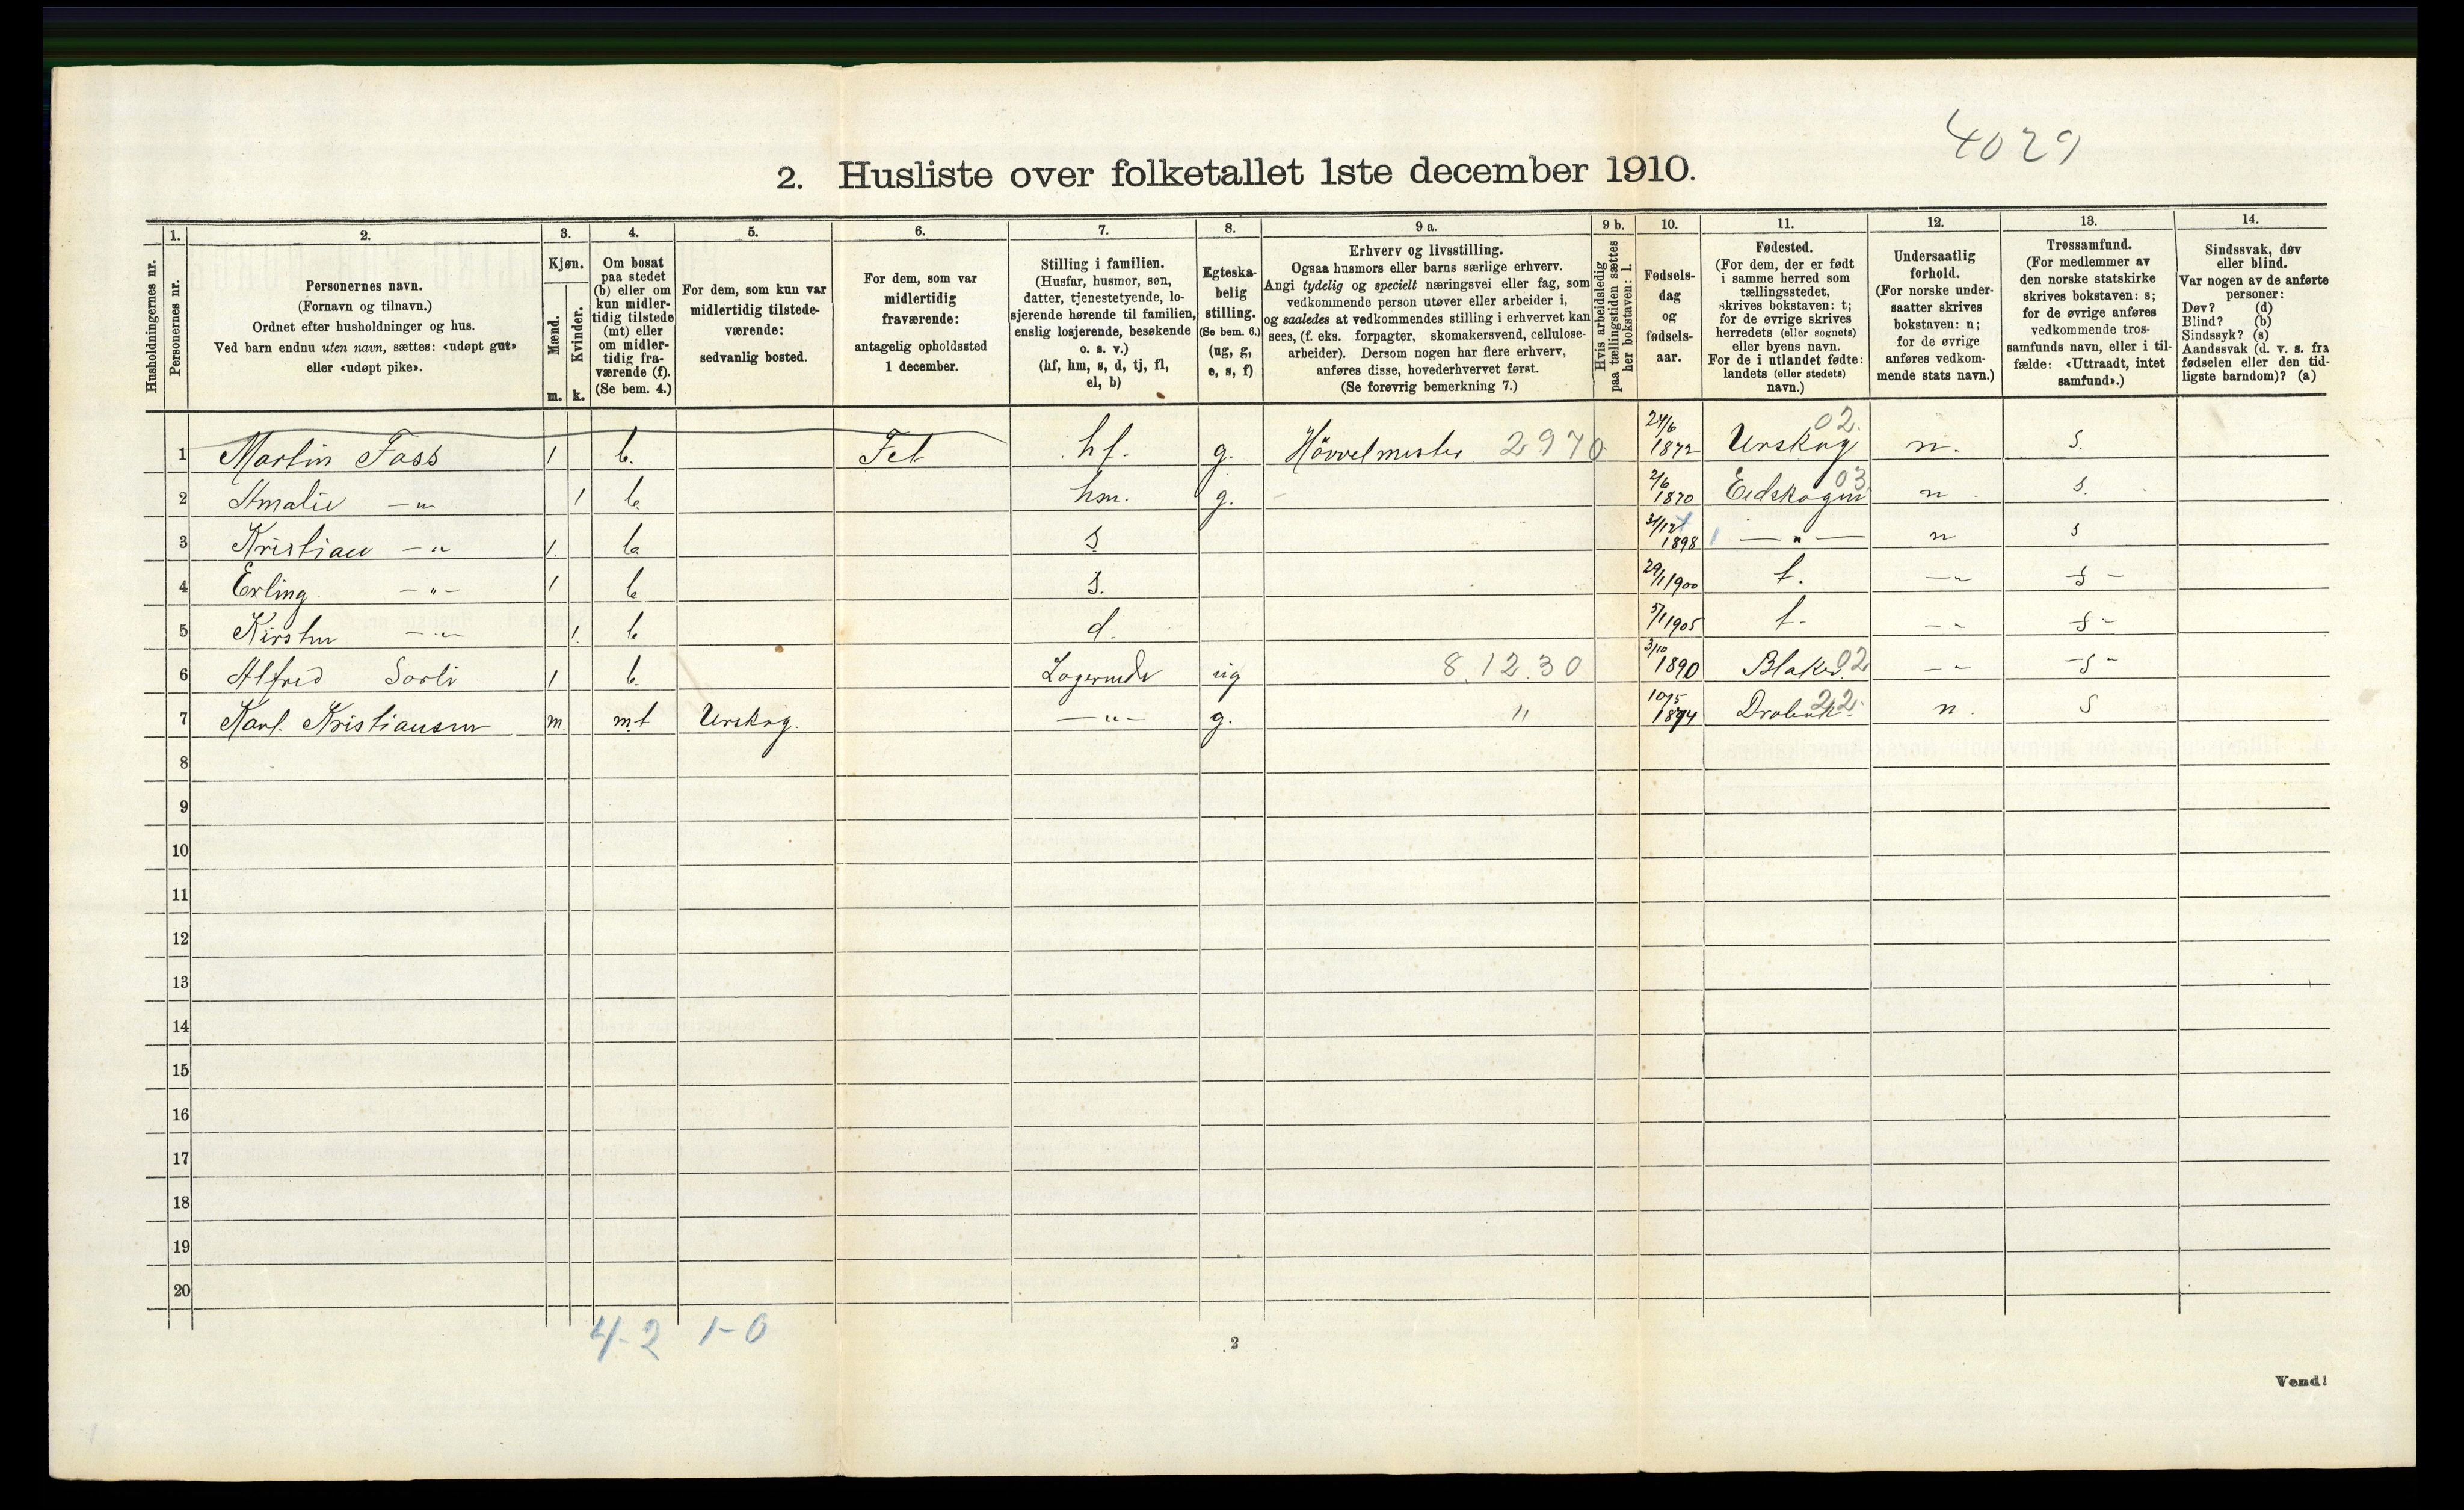 4029
2. Husliste over folketallet 1ste december 1910.
Husholdningernes nr.
1.
Personernes nr.
2.
Personernes navn.
(Fornavn og tilnavn.)
Ordnet efter husholdninger og hus.
Ved barn endnu uten navn, sættes: «udøpt gut»
eller «udøpt pike».
3.
Kjøn.
Mænd.
Kvinder.
m. k.
4.
Om bosat
paa stedet
(b) eller om
kun midler-
tidig tilstede
(mt) eller
om midler-
tidig fra-
værende (f).
(Se bem. 4.)
5.
For dem, som kun var
midlertidig tilstede-
værende:
sedvanlig bosted.
6.
For dem, som var
midlertidig
fraværende:
antagelig opholdssted
1 december.
7.
Stilling i familien.
(Husfar, husmor, søn,
datter, tjenestetyende, lo-
sjerende hørende til familien,
enslig losjerende, besøkende
o. s. v.)
(hf, hm, s, d, tj, fl,
el, b)
8.
Egteska-
belig
stilling.
(Se bem. 6.)
(ug, g,
e, s, f)
9 a.
Erhverv og livsstilling.
Ogsaa husmors eller barns særlige erhverv.
Angi tydelig og specielt næringsvei eller fag, som
vedkommende person utøver eller arbeider i,
og saaledes at vedkommendes stilling i erhvervet kan
sees, (f. eks. forpagter, skomakersvend, cellulose-
arbeider). Dersom nogen har flere erhverv,
anføres disse, hovederhvervet først.
(Se forøvrig bemerkning 7.)
9 b.
Hvis arbeidsledig
paa tællingstiden sættes
her bokstaven: l.
10.
Fødsels-
dag
og
fødsels-
aar.
11.
Fødested.
(For dem, der er født
i samme herred som
tællingsstedet,
skrives bokstaven: t;
for de øvrige skrives
herredets (eller sognets)
eller byens navn.
For de i utlandet fødte:
landets (eller stedets)
navn.)
12.
Undersaatlig
forhold.
(For norske under-
saatter skrives
bokstaven: n;
for de øvrige
anføres vedkom-
mende stats navn.)
13.
Trossamfund.
(For medlemmer av
den norske statskirke
skrives bokstaven: s;
for de øvrige anføres
vedkommende tros-
samfunds navn, eller i til-
fælde: «Uttraadt, intet
samfund».)
14.
Sindssvak, døv
eller blind.
Var nogen av de anførte
personer:
Døv? (d)
Blind? (b)
Sindssyk? (s)
Aandssvak (d. v. s. fra
fødselen eller den tid-
ligste barndom)? (a)
1 Martin Foss 1 b. Fet hf. g. Hövvelmester 2970 24/6 1872 Urskog 02 n. s.
2 Amalie —"— 1 b. hm. g. 2/6 1870 Eidskogen 03 n s.
3 Kristian —"— 1. b. s 31/12 1898 1 —"— n s
4 Erling —"— 1 b s. 29/1 1900 t. —"— s —
5 Kirsten —"— 1. b d. 5/1 1905 t. —"— s —
6 Alfred Sorli 1 b. Logerende ug 8.12.30 3/10 1890 Blaker 02 —"— s —
7 Karl. Kristiansen m. mt Urskog. —"— g. " 10/5 Drøbak 22 n. s
8
9
10
11
12
13
14
15
16
17
18
19
20
4-2 1-0
2
Vend!